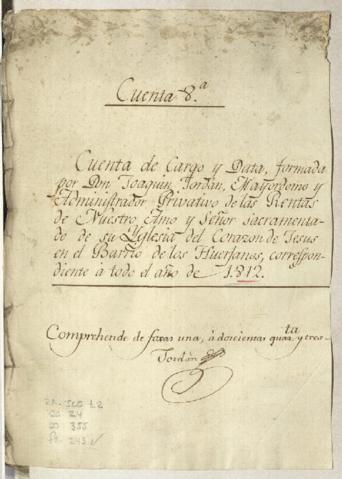 Cuenta 8.a
Cuenta de Cargo y Data, formada
por Dn. Joaquin Jordán, Mayordomo y
Administrador Privativo de las Rentas
de Nuestro Amo y Señor sacramenta-
do de su Yglesia del Corazon de Jesus
en el Barrio de los Huerfanos, correspon-
diente à todo el año de 1812.
Comprehende de foxas una, à docientas quarta y tres-
Jordán
355
243